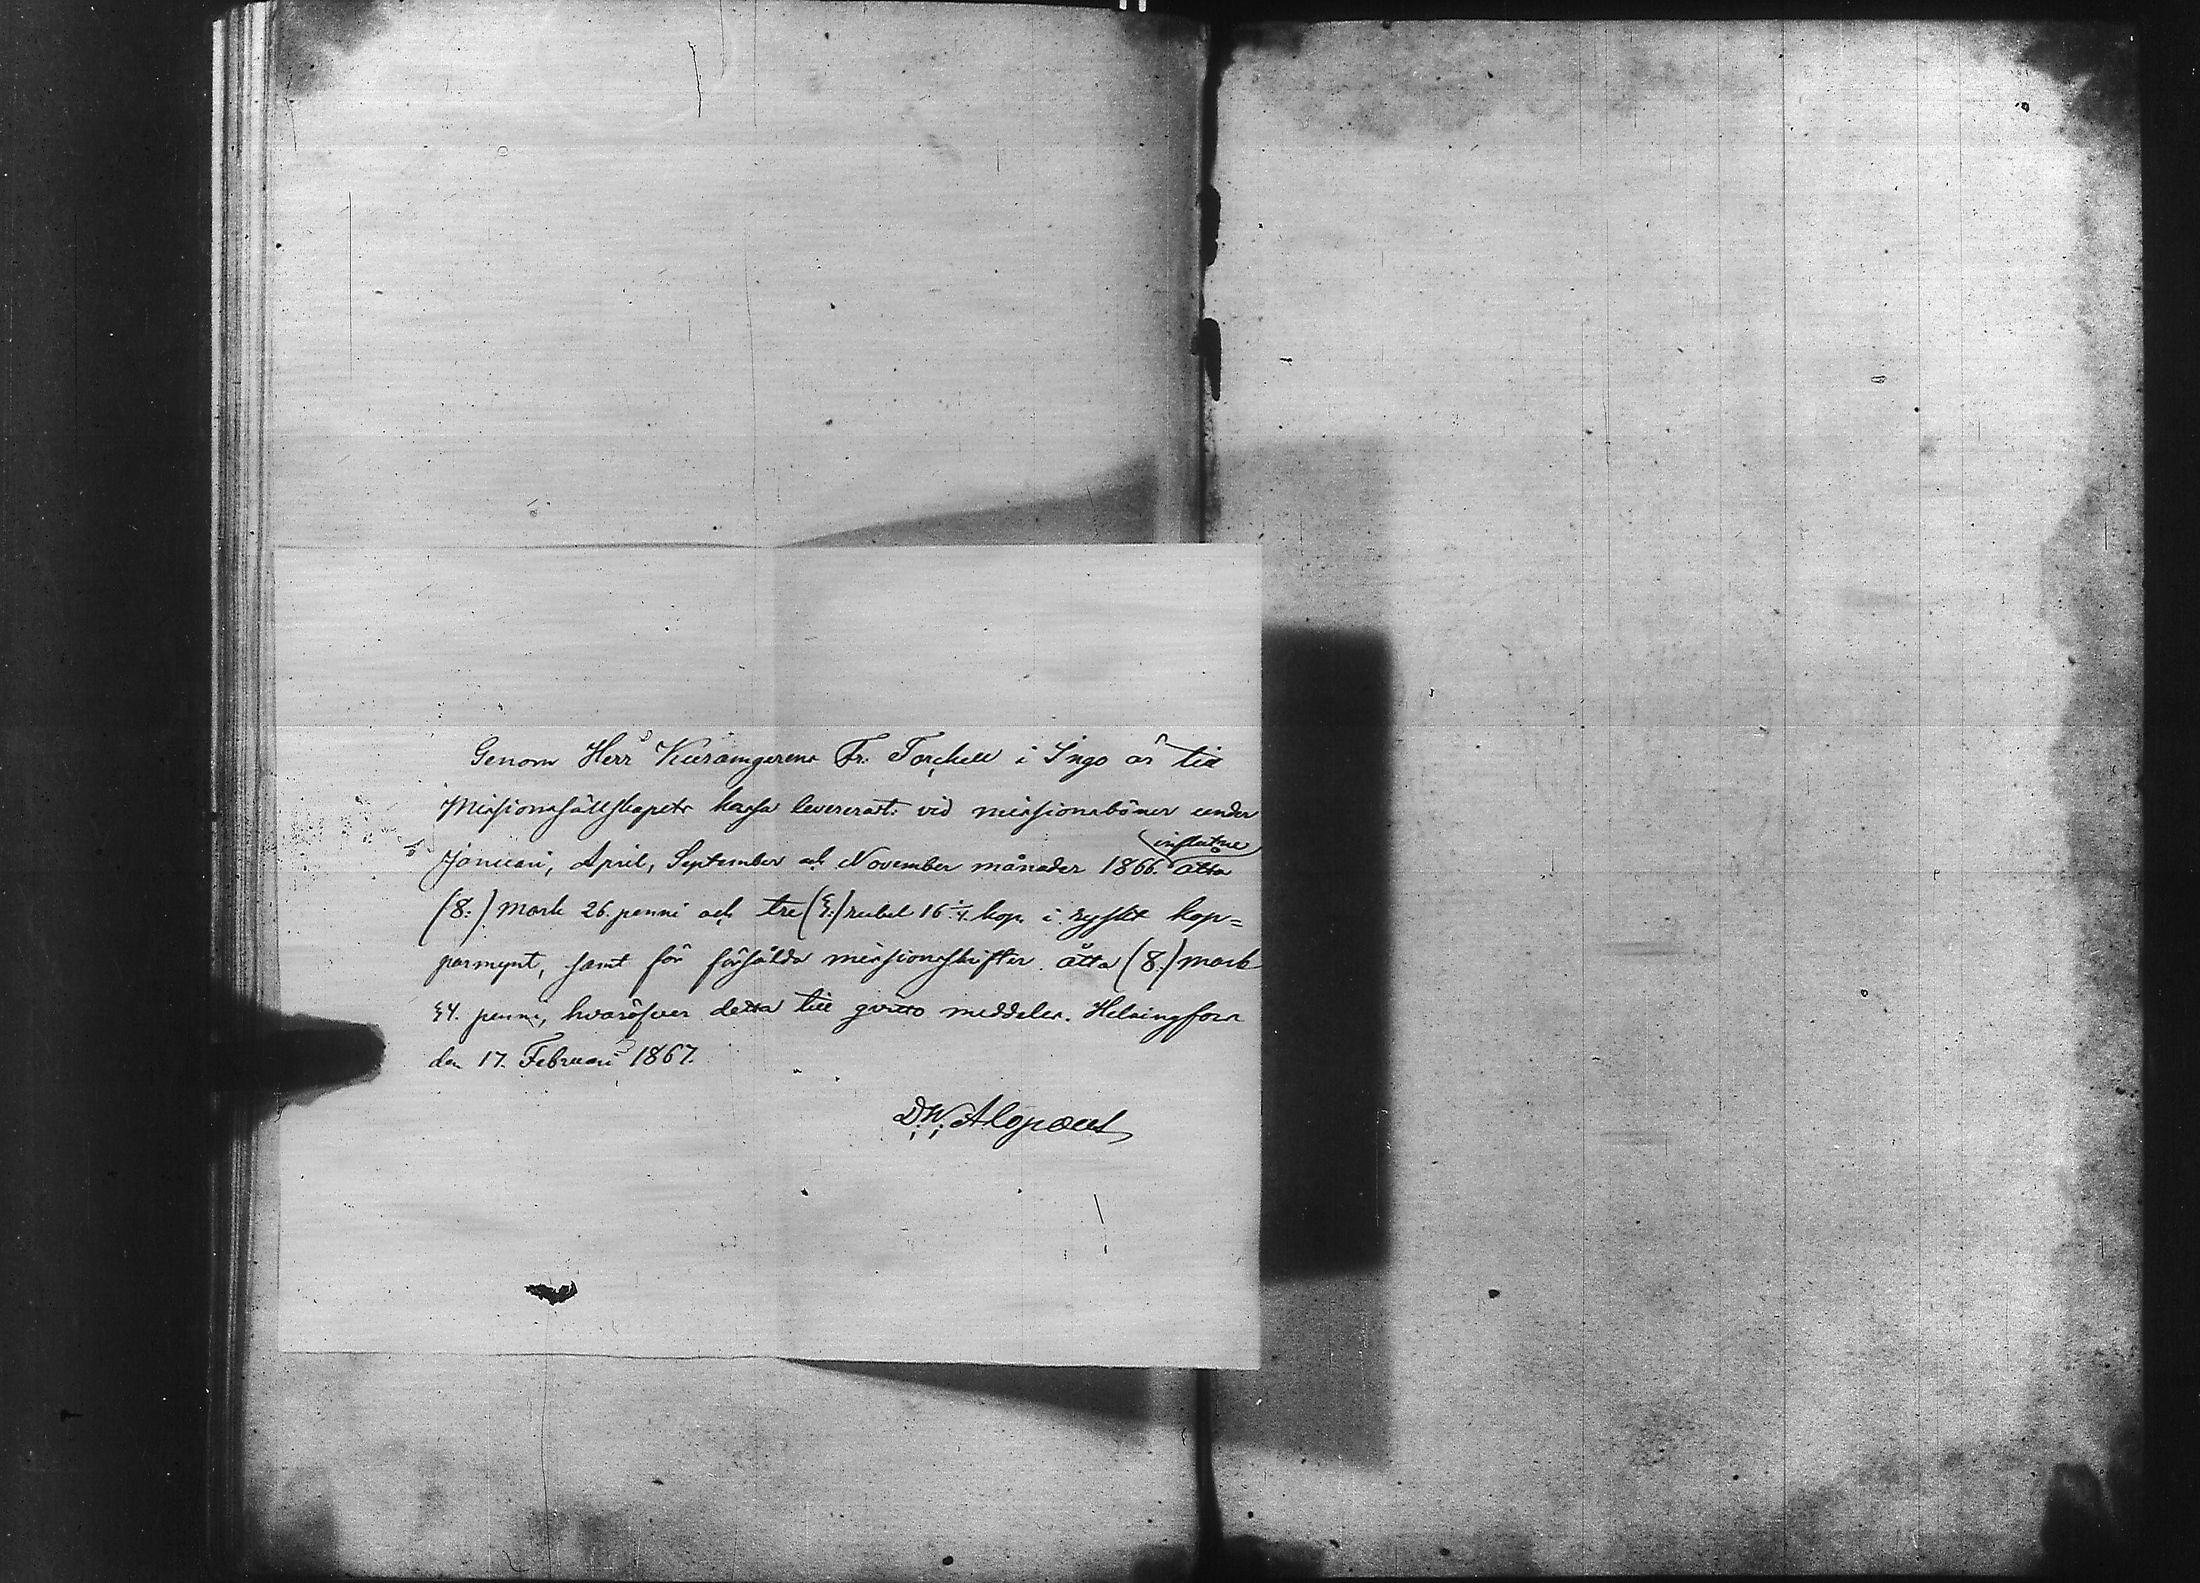 Genom Herr Kyrkoherden Fr. Torckell i Ingo är till
Missionssällskapets kassa levererat: vid missionsböner under
Januari, April, September och November månader 1866. influtne åtta
(8:) mark 26. penni och tre (3:) rubel 16 1/4. kop. i ryskt kop=
parmynt, samt för försålda missionsskrifter åtta (8:) mark
34. penni, hvaröfver detta till qvitto meddelas. Helsingfors
den 17. Februari 1867.
D. W. Alopæus